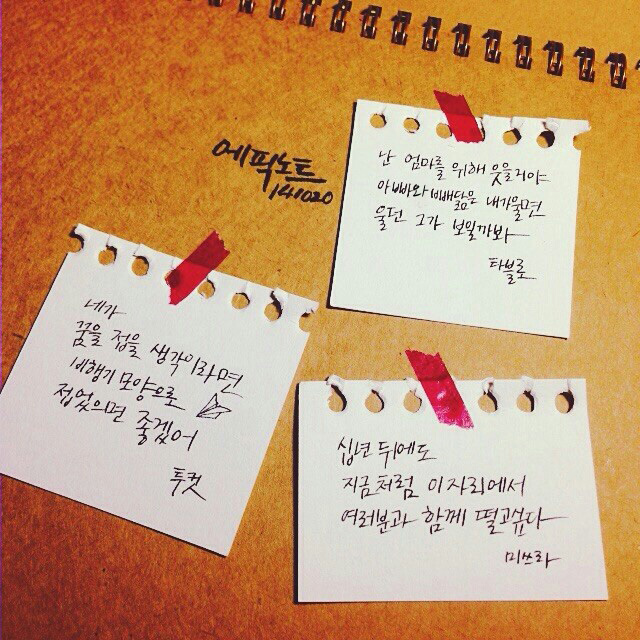 에픽노트
141020
난 엄마를 위해 웃을거야
아빠와 빼닮은 내가 울면
울던 그가 보일까봐
타블로
네가
꿈을 접을 생각이라면
비행기 모양으로
접었으면 좋겠어
투컷
십년 뒤에도
지금처럼 이 자리에서
여러분과 함께 떨고싶다
미쓰라